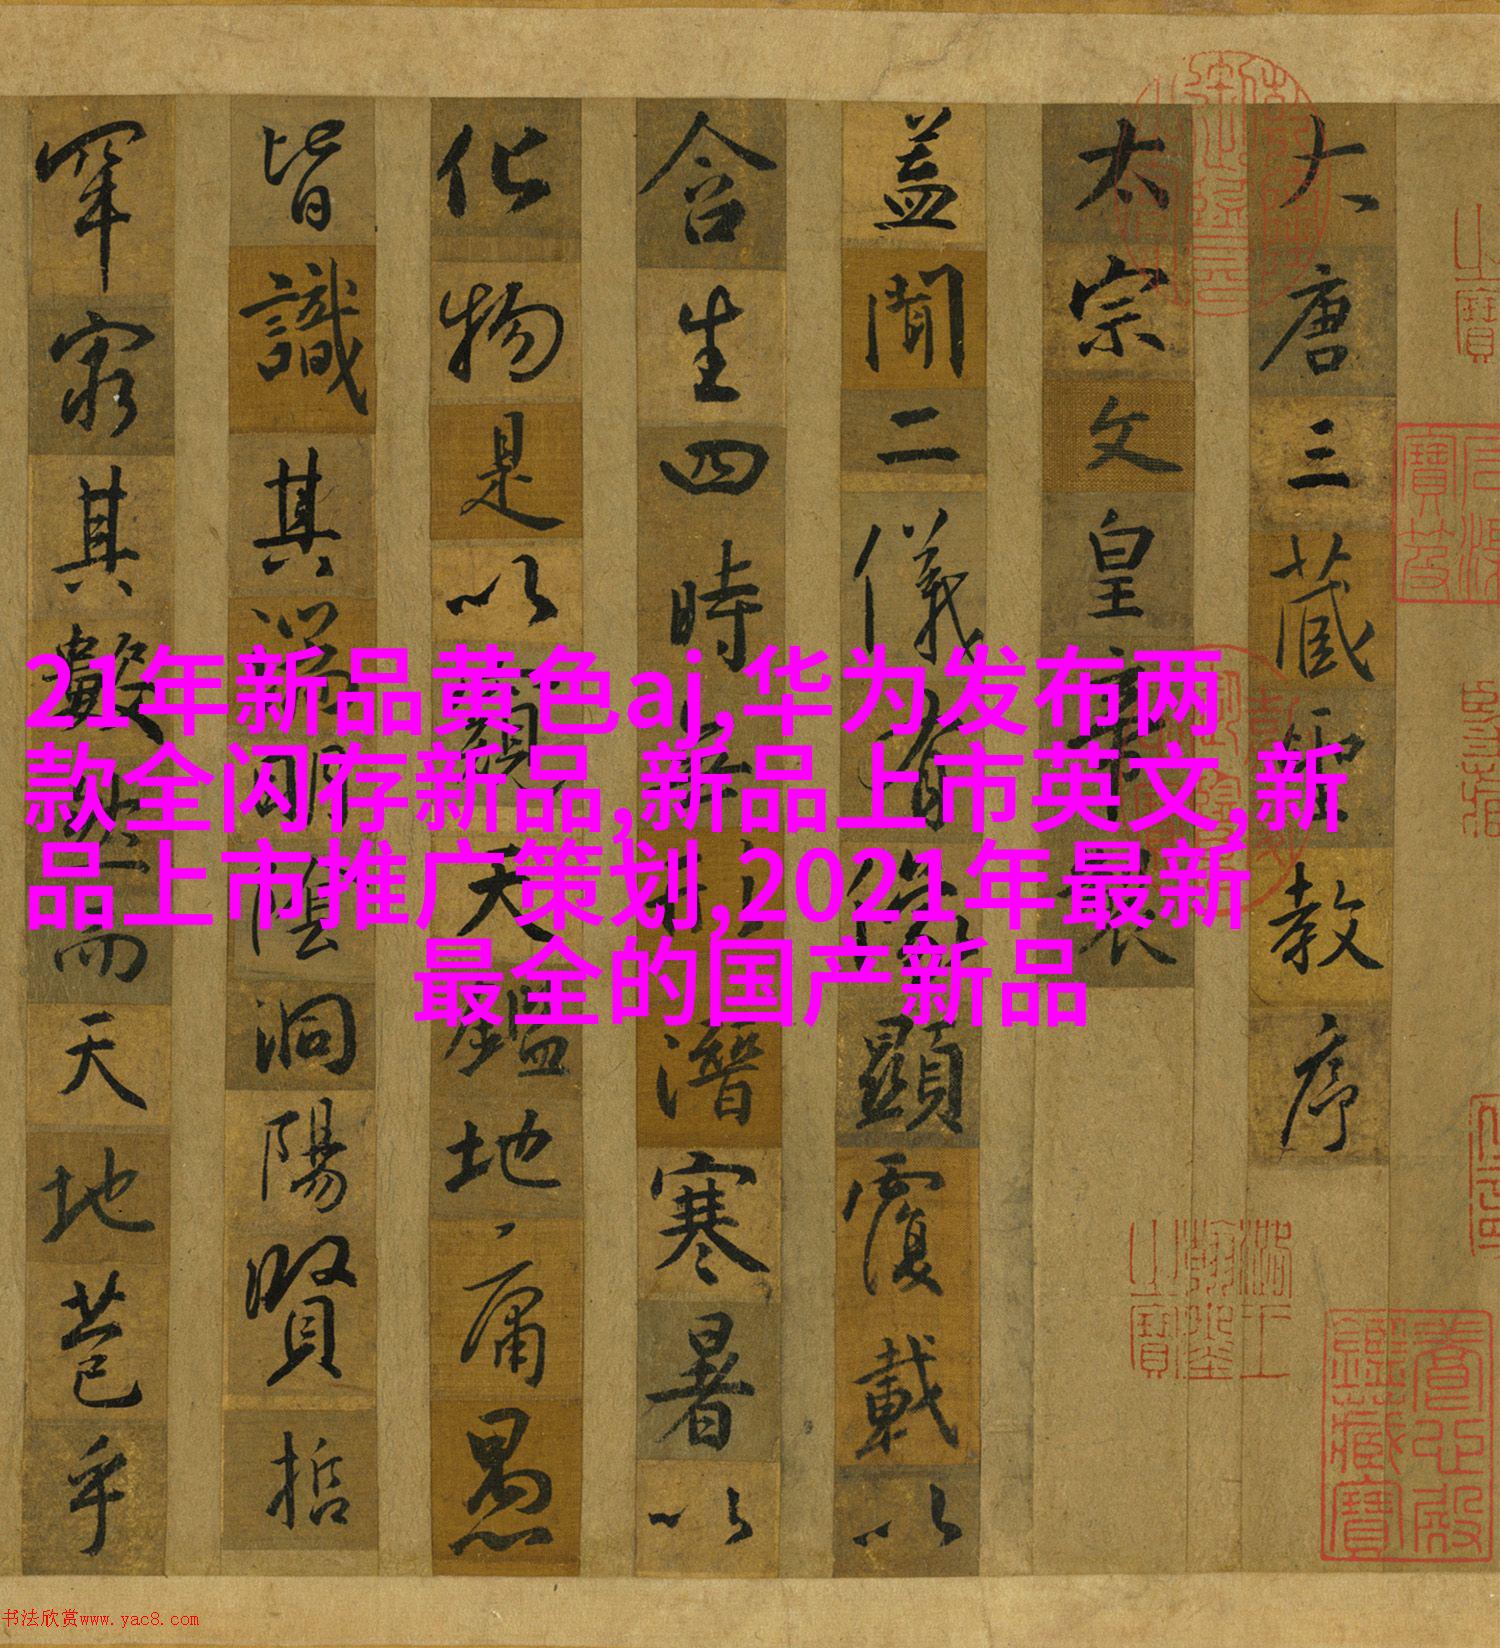 大唐三藏聖教序
太宗文皇帝製
盖聞二儀有像顯覆載以
含生四時無形潛寒暑以
化物是以窺天鑑地庸愚
皆識其端明陰洞陽賢哲
罕窮其數然而天地苞乎
21年新品黄色aj,华为发布两
款全闪存新品,新品上市英文,新
品上市推广策划,2021年最新
最全的国产新品
石渠寶笈
養心殿鑑藏寶
书法欣赏www.yac8.com